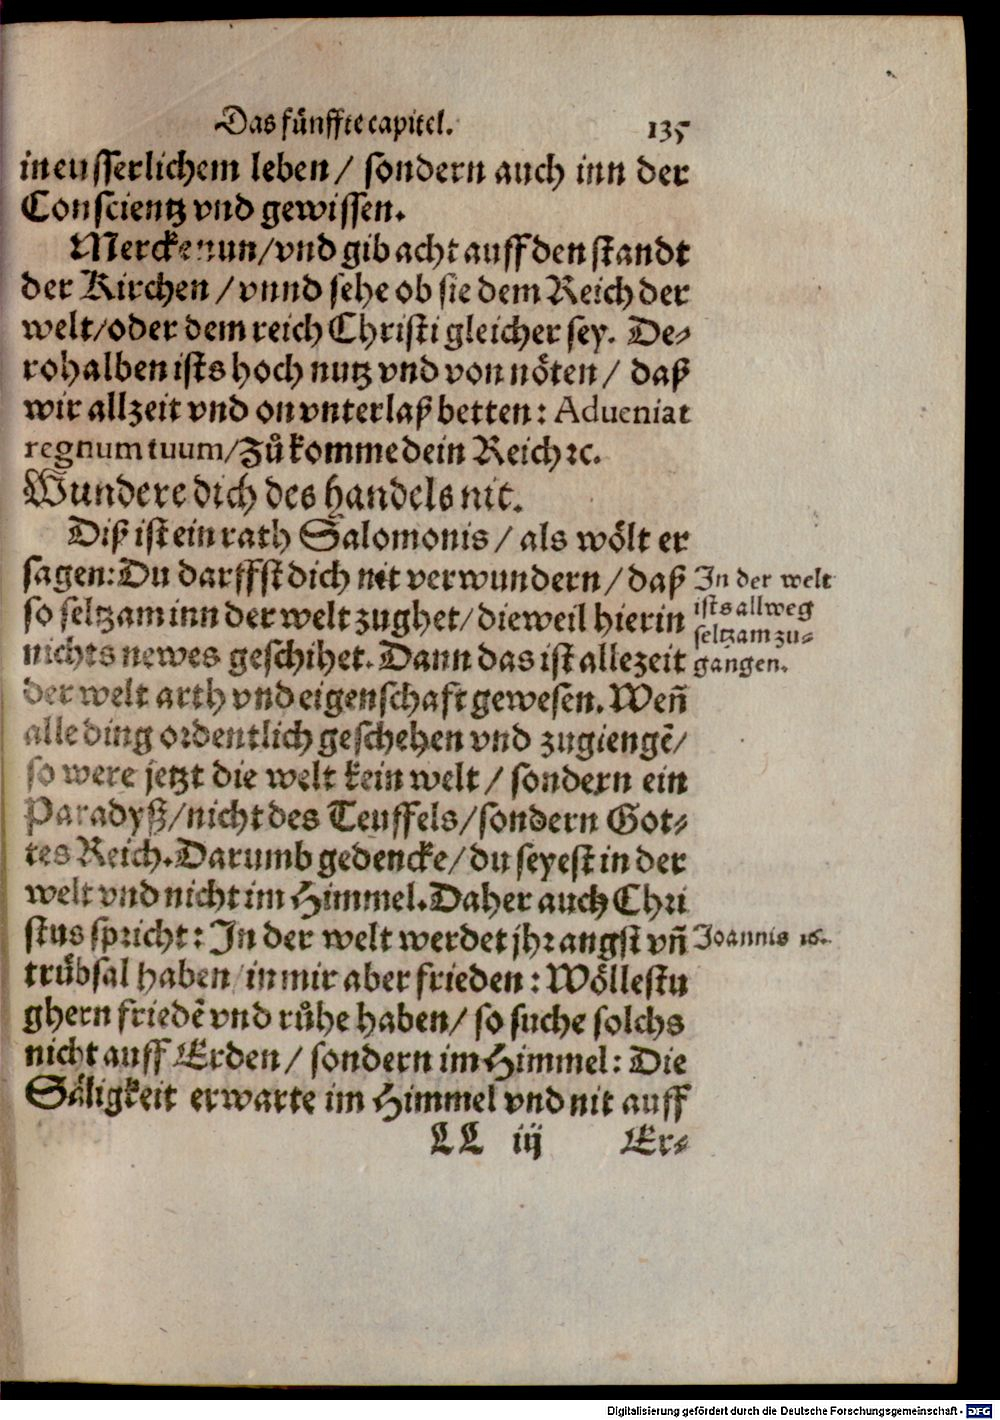 Das fünffte capitel. 135
in eusserlichem leben / sondern auch inn der
Conscientz vnd gewissen.
Mercke nun / vnd gib acht auff den standt
der Kirchen / vnnd sehe ob sie dem Reich der
welt / oder dem reich Christi gleicher sey. De-
rohalben ists hoch nutz vnd von nöten / daß
wir allzeit vnd on vnterlaß betten: Adueniat
regnum tuum / Zů komme dein Reich ꝛc.
Wundere dich des handels nit.
Diß ist ein rath Salomonis / als wölt er
sagen: Du darffst dich nit verwundern / daß
so seltzam inn der welt zughet / dieweil hierin
nichts newes geschihet. Dann das ist allezeit
der welt arth vnd eigenschaft gewesen. Wen̄
alle ding ordentlich geschehen vnd zugiengē /
so were jetzt die welt kein welt / sondern ein
Paradyß / nicht des Teuffels / sondern Got-
tes Reich. Darumb gedencke / du seyest in der
welt vnd nicht im Himmel. Daher auch Chri
stus spricht: In der welt werdet jhr angst vn̄
trübsal haben / in mir aber frieden: Wöllestu
ghern friedē vnd růhe haben / so suche solchs
nicht auff Erden / sondern im Himmel: Die
Säligkeit erwarte im Himmel vnd nit auff
LL iij Er-
In der welt
ists allweg
seltzam zu-
gangen.
Joannis 16.
Digitalisierung gefördert durch die Deutsche Forschungsgemeinschaft - DFG